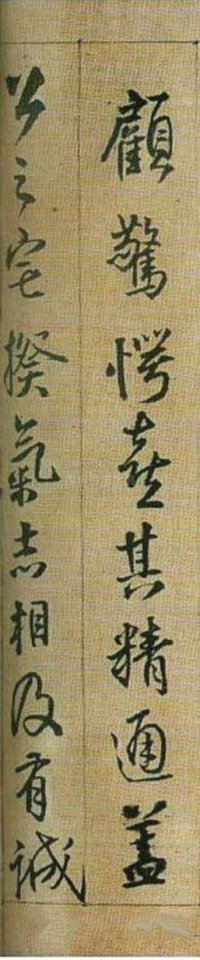 顧驚愕喜其精通蓋
公之宅揆氣志相及有誠